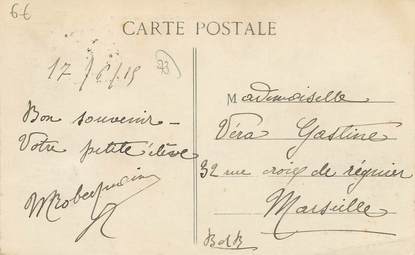 66
CARTE POSTALE
17/6/15
Bon souvenir -
Votre petite élève
Mademoiselle
Véra Gastine
32 rue croix de régnier
Marseille
BdR